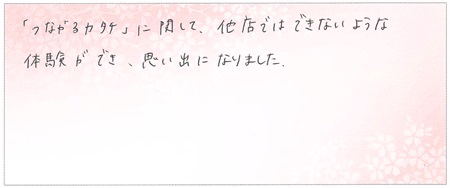 「つながるカタチ」に関して、他店ではできないような
体験ができ、思い出になりました。